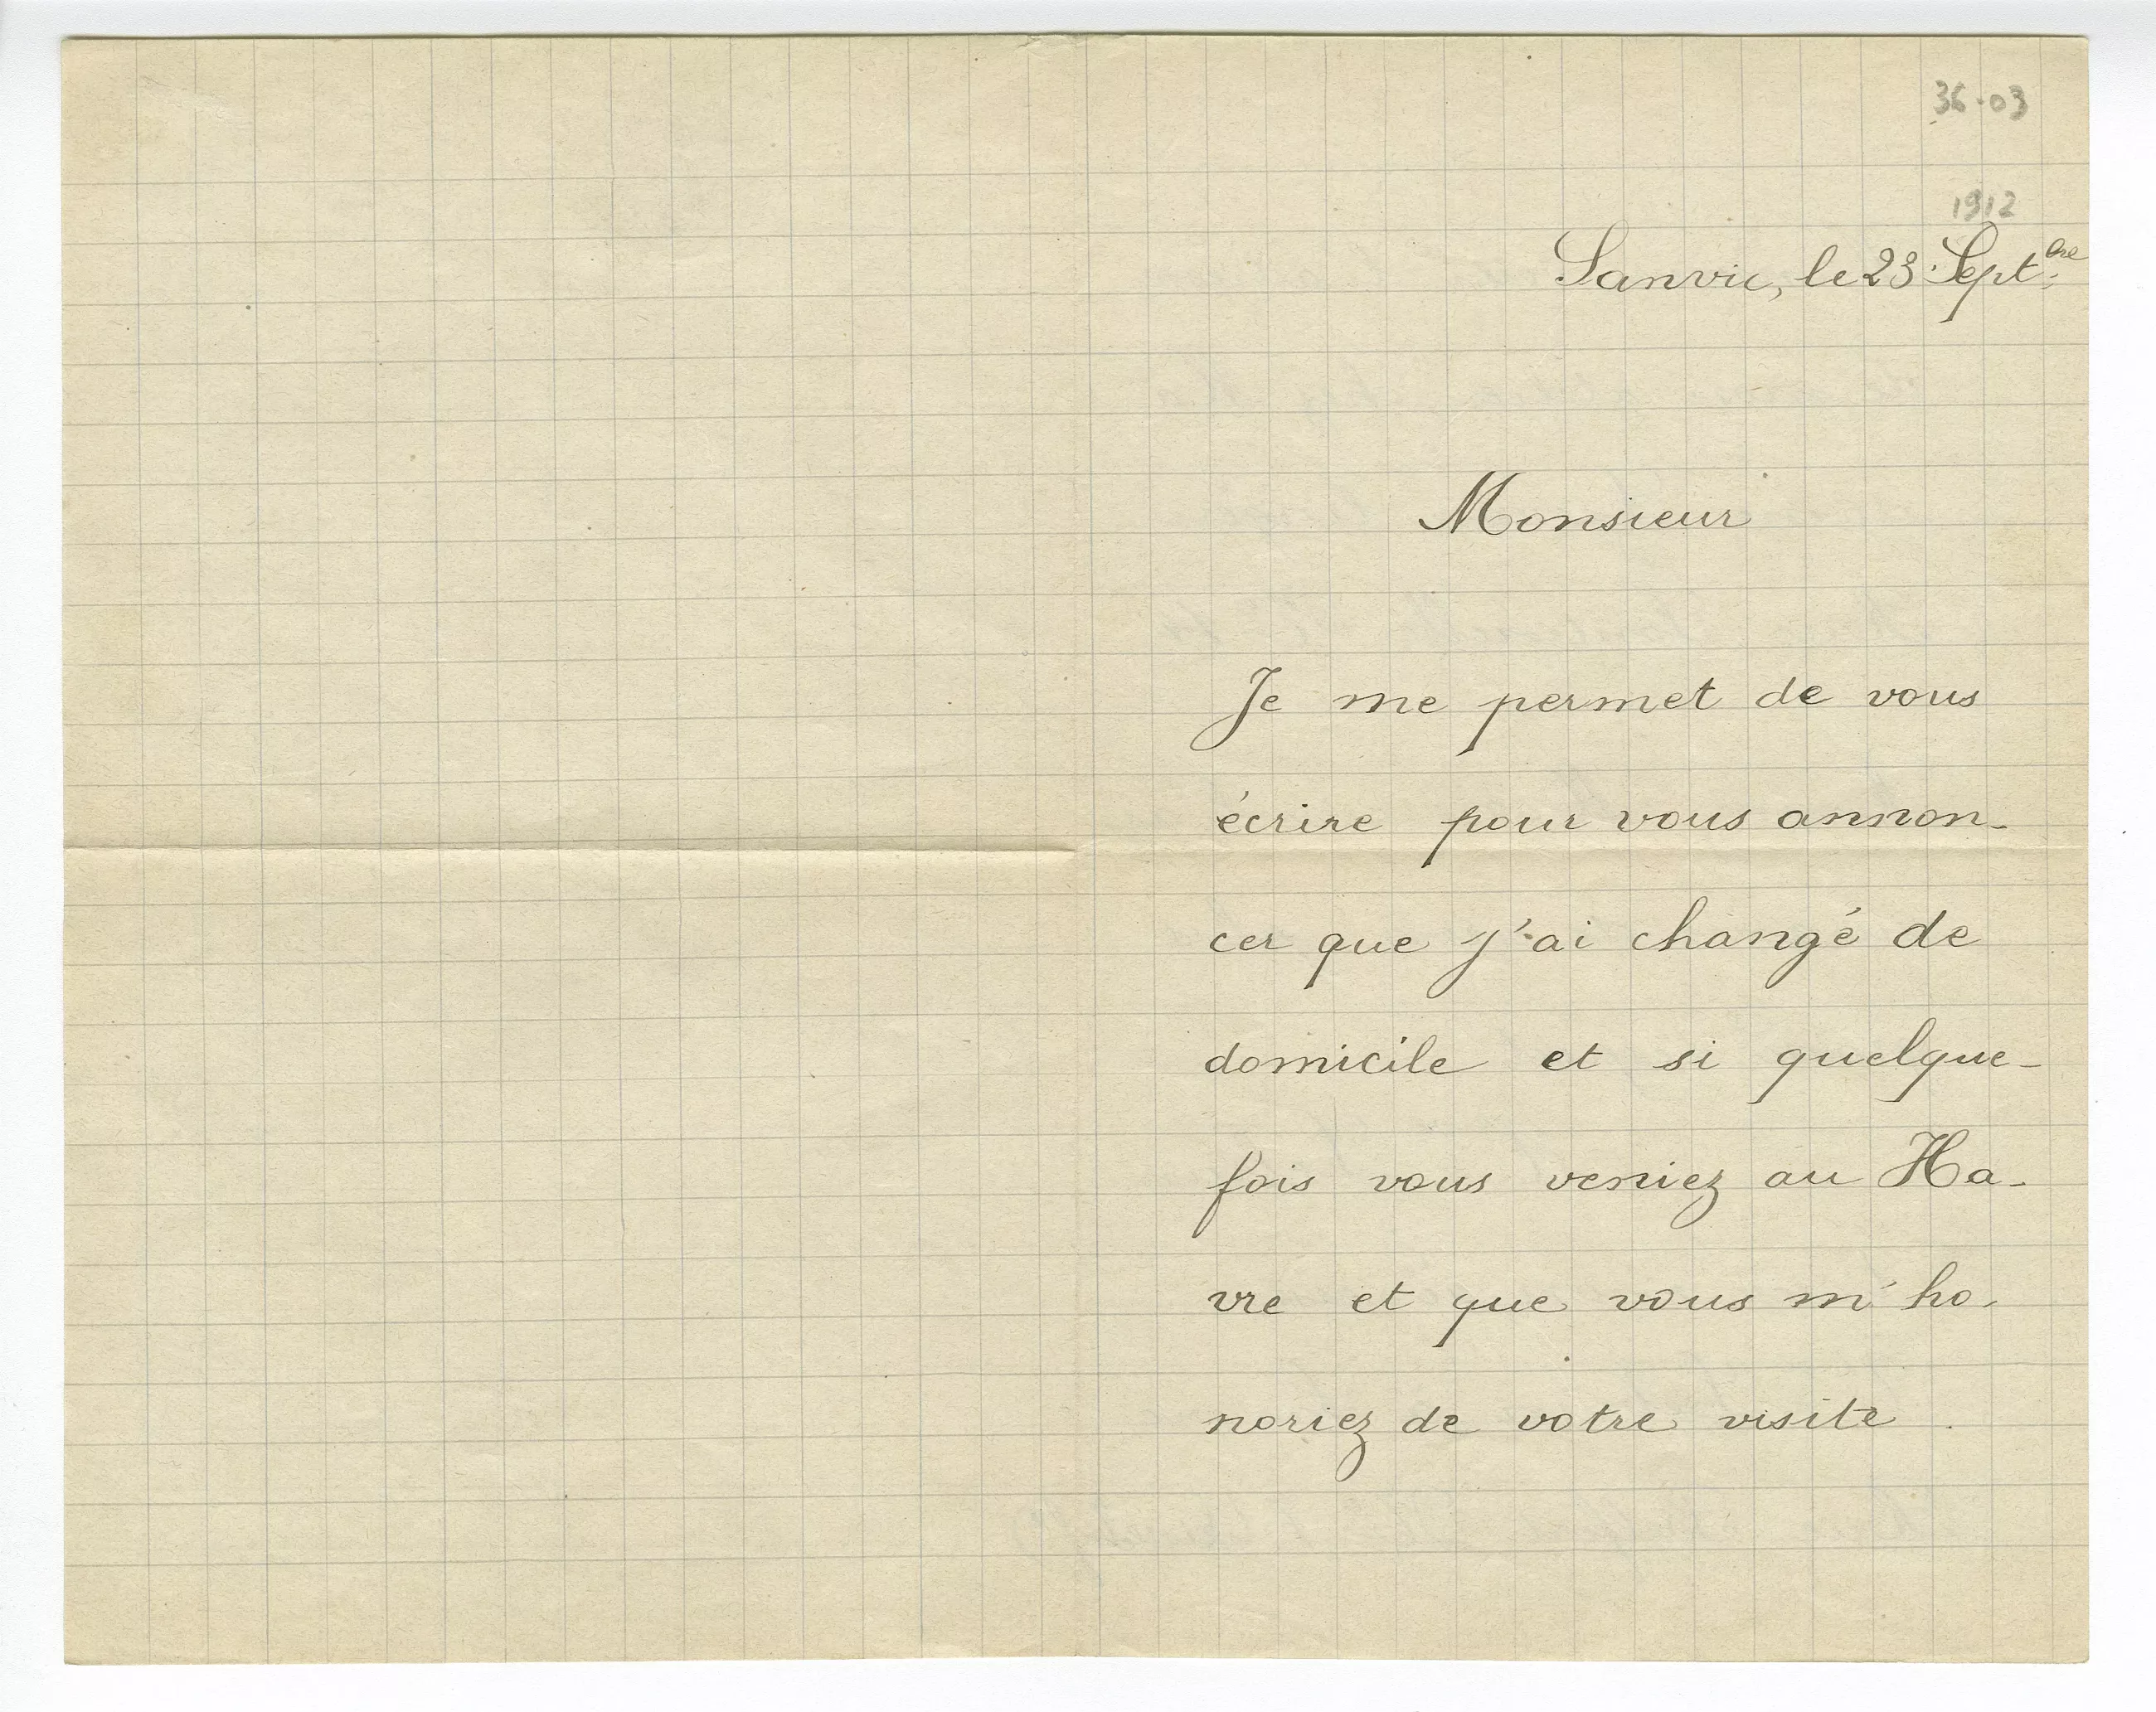 36-03
1912
Sanvic, le 23 Septbre
Monsieur
Je me permet de vous
écrire pour vous annon-
cer que j'ai changé de
domicile et si quelque-
fois vous veniez au Ha-
vre et que vous m'ho-
noriez de votre visite .